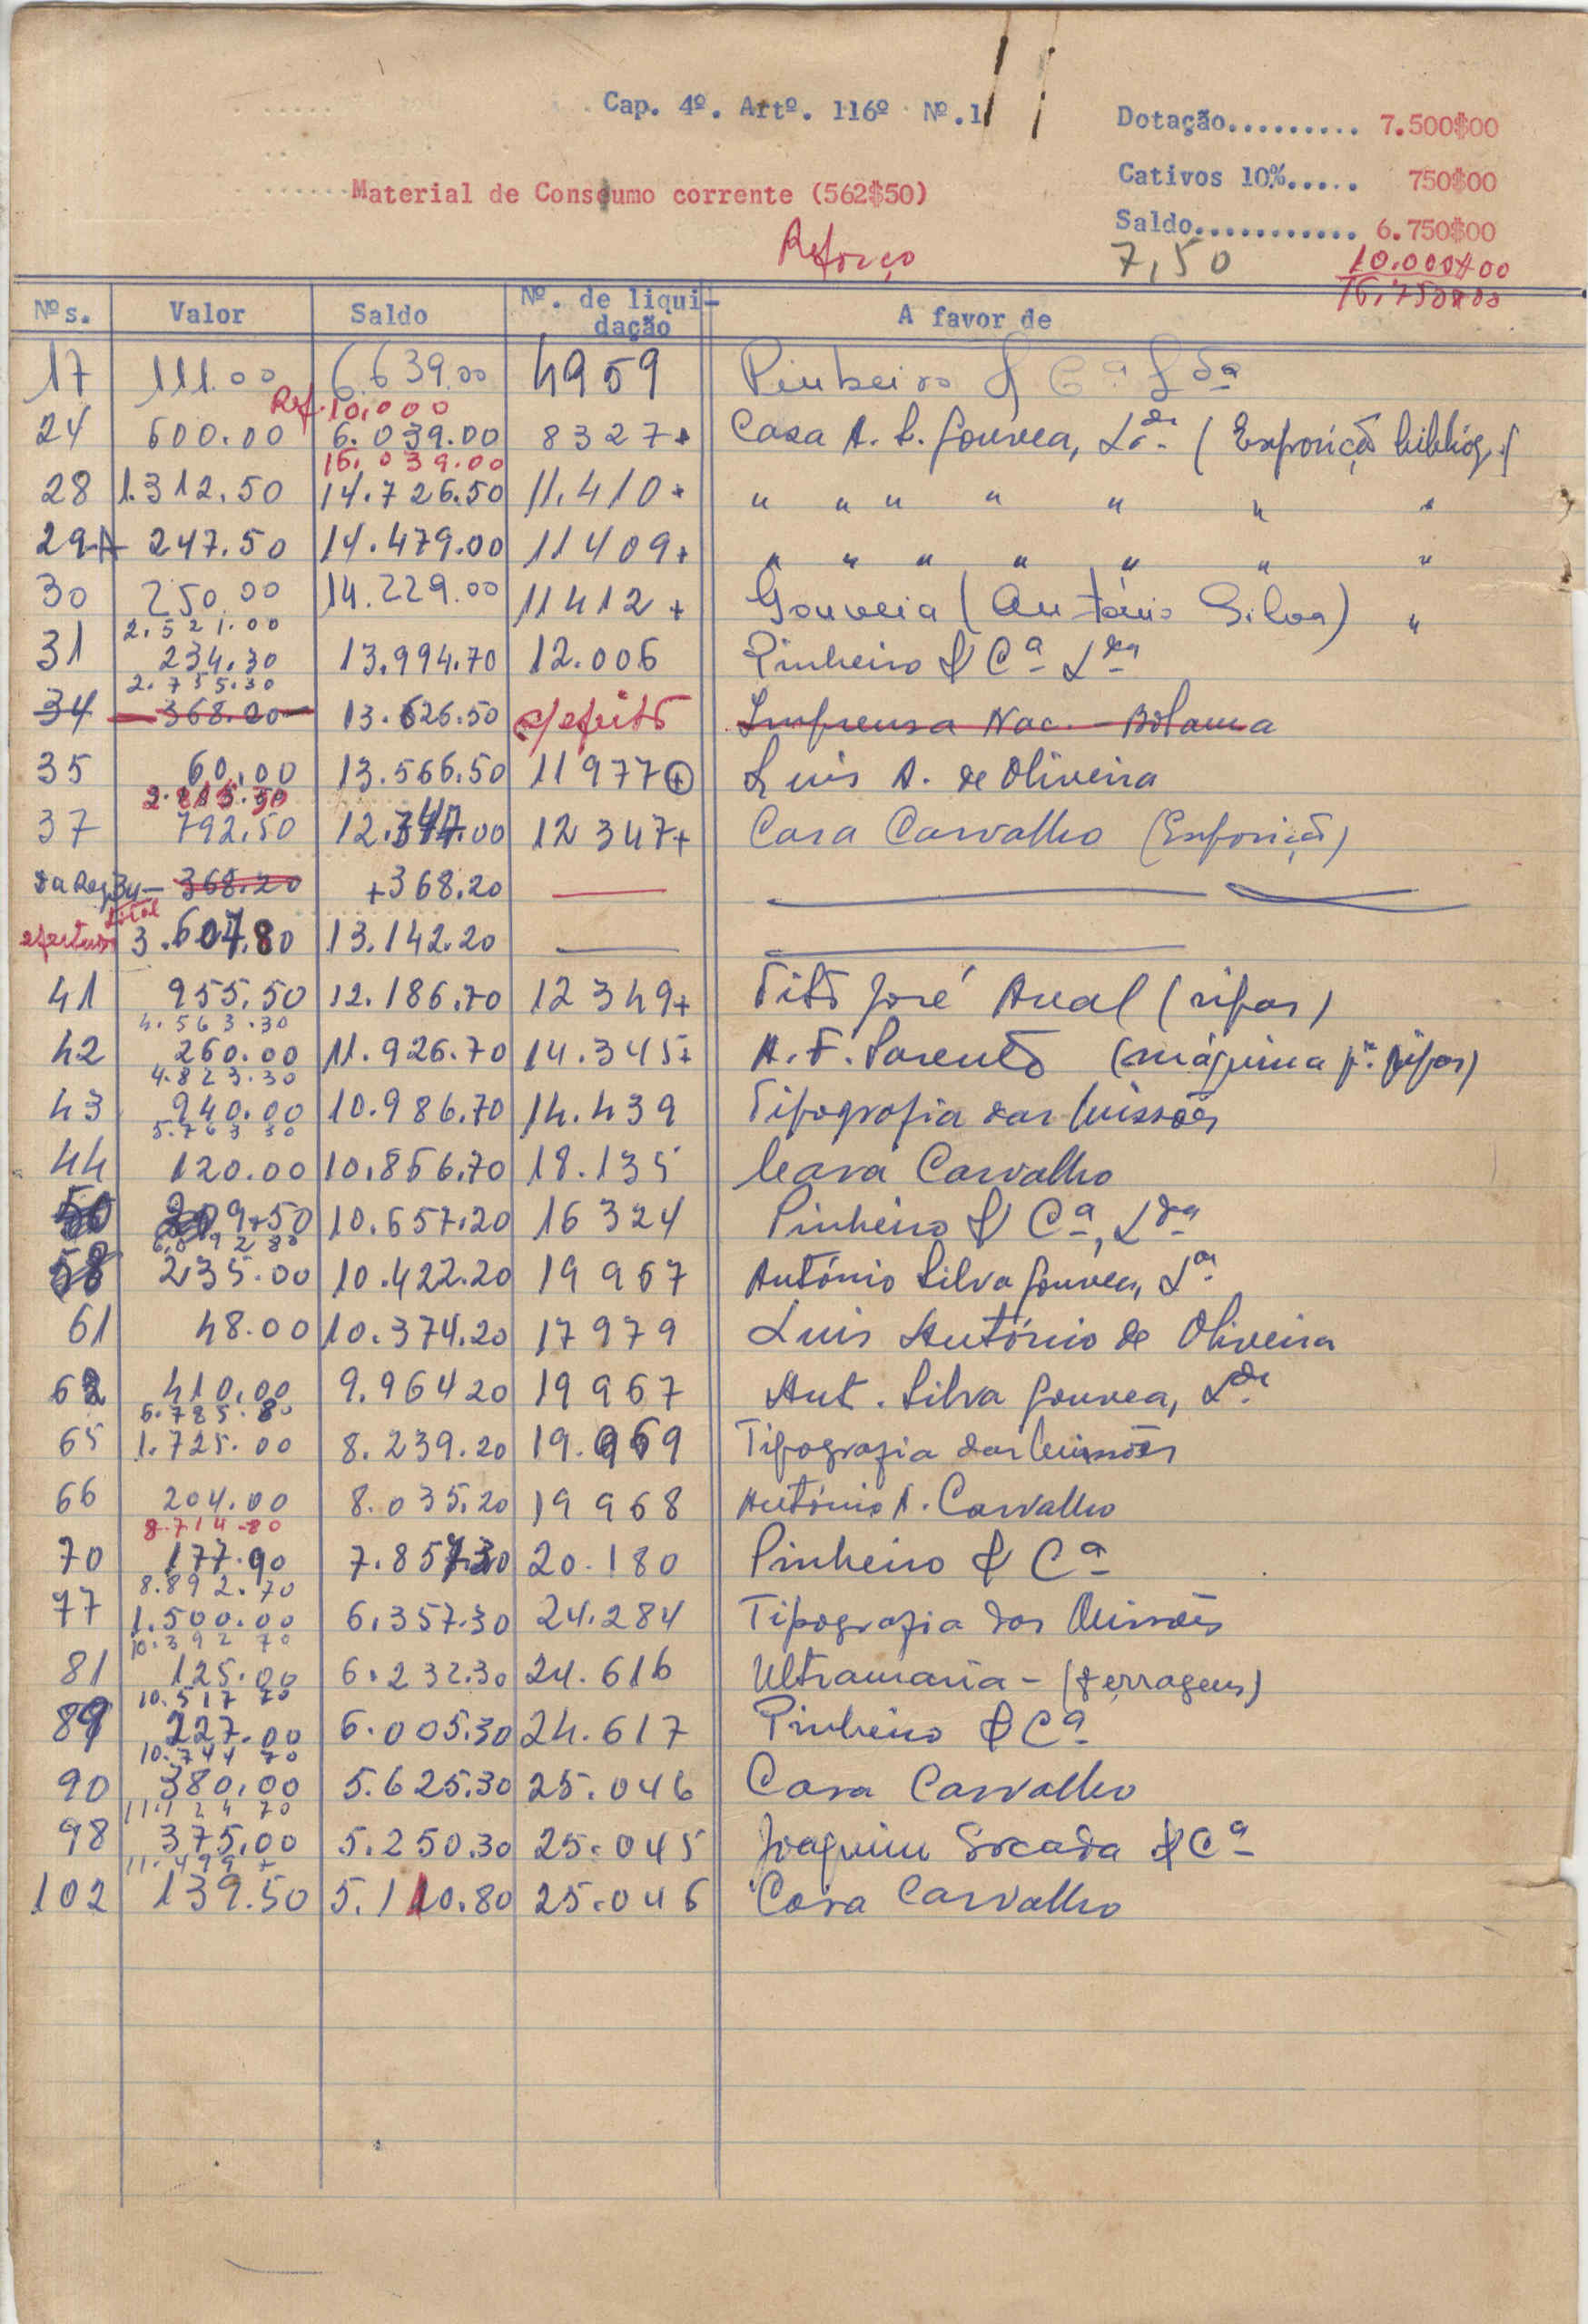 Cap. 4º. Artº. 116º Nº.1
Dotação......... 7.500$00
Cativos 10%..... 750$00
Material de Consumo corrente (562$50)
Saldo........... 6.750$00
Reforço 7,50 10.000$00
16.750$00
Nºs. Valor Saldo Nº. de liqui-dação A favor de
17 111.00 6.639.00 4959 Pinheiro & Cª Ldª
Ref. 10.000
24 600.00 6.039.00 8327+ Casa A. S. Gouvea, Ldª (Exposição bibliog.)
16.039.00
28 1.312.50 14.726.50 11.410+ " " " " " " "
29-A 247.50 14.479.00 11409+ " " " " " " "
30 250.00 14.229.00 11412+ Gouveia (António Silva) "
2.521.00
31 234.30 13.994.70 12.006 Pinheiro & Cª Ldª
2.755.30
34 368.20 13.626.50 s/efeito Imprensa Nac. - Bolama
35 60.00 13.566.50 11977+ Luis A. de Oliveira
2.815.30
37 792.50 12.774.00 12347+ Casa Carvalho (Exposição)
da Req 34- 368.20 +368.20
total
efectuado 3.607.80 13.142.20
41 955.50 12.186.70 12349+ Tito José Anal (rifas)
4.563.30
42 260.00 11.926.70 14.345+ A. F. Parento (máquina pª. rifas)
4.823.30
43 940.00 10.986.70 14.439 Tipografia das Missões
5.763 30
44 120.00 10.866.70 18.135 Casa Carvalho
50 209.50 10.657.20 16324 Pinheiro & Cª, Ldª
6.092 80
58 235.00 10.422.20 19967 António Silva Gouvea, Lª
61 48.00 10.374.20 17979 Luis António de Oliveira
62 410.00 9.964 20 19967 Ant. Silva Gouvea, Ldª
6.785.80
65 1.725.00 8.239.20 19.969 Tipografia das Missões
66 204.00 8.035.20 19968 António A. Carvalho
8.714.80
70 177.90 7.857.30 20.180 Pinheiro & Cª
8.892.70
77 1.500.00 6.357.30 24.284 Tipografia das Missões
10.392 70
81 125.00 6.232.30 24.616 Ultramarina - (ferragens)
10.517 70
89 227.00 6.005.30 24.617 Pinheiro & Cª
10.744 70
90 380.00 5.625.30 25.046 Casa Carvalho
11.124 70
98 375.00 5.250.30 25.045 Joaquim Socada & Cª
11.499 7
102 139.50 5.110.80 25.046 Casa Carvalho